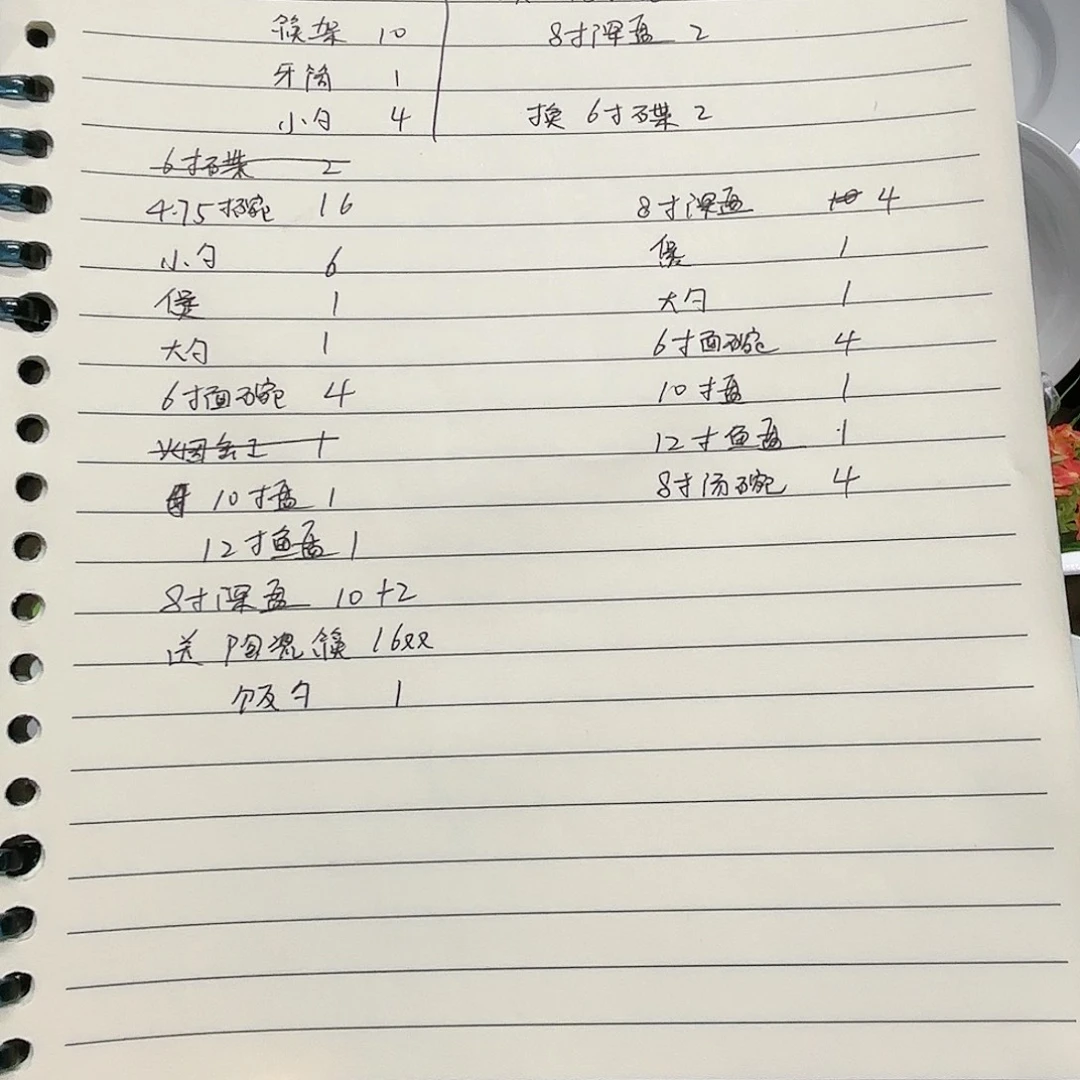 筷架 10
牙筒 1
小勺 4
8寸深盘 2
换 6寸碟 2
6寸碟 2
4.75寸碗 16
小勺 6
煲 1
大勺 1
6寸面碗 4
烟缸 1
10寸盘 1
12寸鱼盘 1
8寸深盘 10+2
送 陶瓷筷 16双
饭勺 1
8寸深盘 10 4
煲 1
大勺 1
6寸面碗 4
10寸盘 1
12寸鱼盘 1
8寸汤碗 4